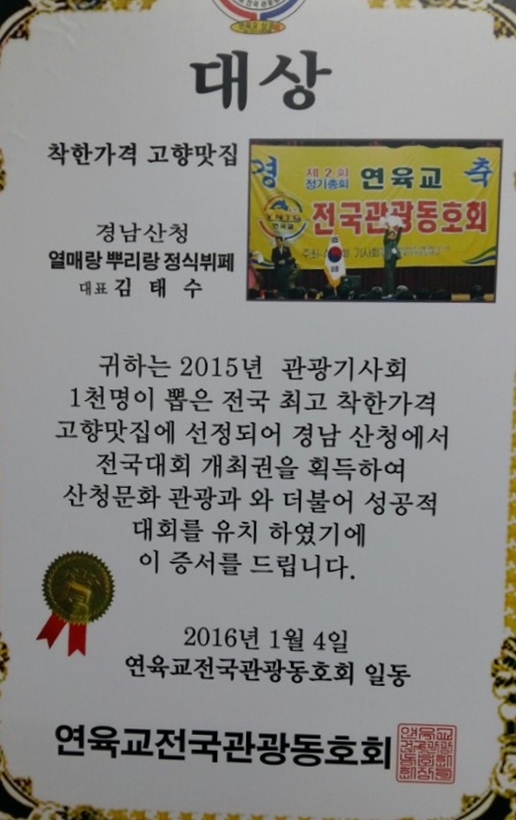 대상
착한가격 고향맛집
경남산청
열매랑 뿌리랑 정식뷔페
대표 김 태 수
경 제 2 회 정기총회 연육교 축
전국관광동호회
귀하는 2015년 관광기사회
1천명이 뽑은 전국 최고 착한가격
고향맛집에 선정되어 경남 산청에서
전국대회 개최권을 획득하여
산청문화 관광과 와 더불어 성공적
대회를 유치 하였기에
이 증서를 드립니다.
2016년 1월 4일
연육교전국관광동호회 일동
연육교전국관광동호회